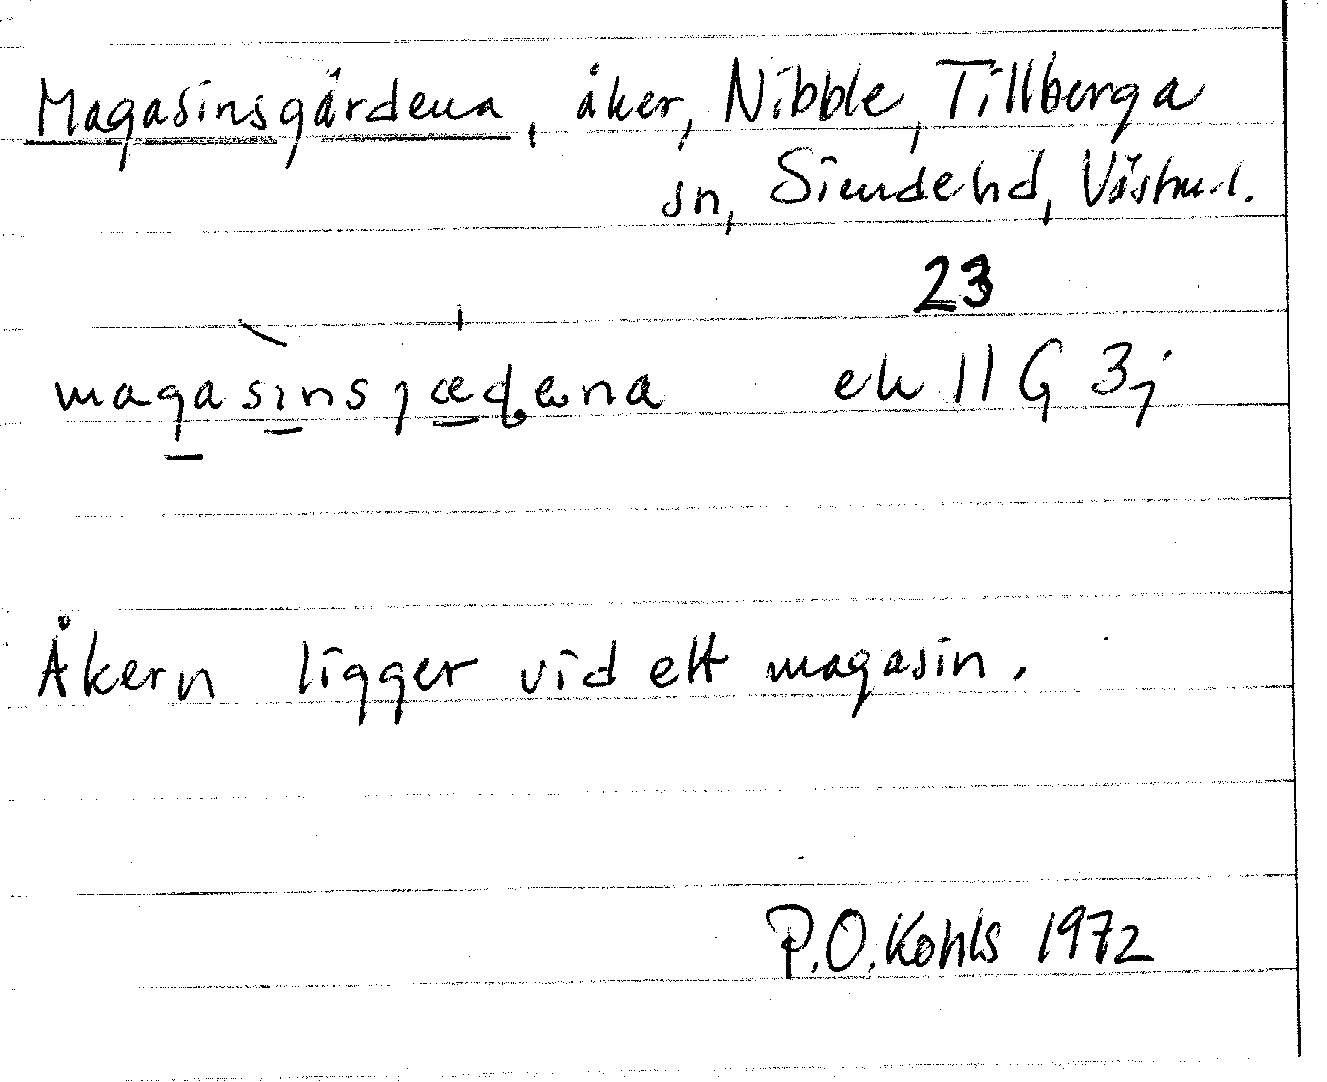 Magasinsgärdena, åker, Nibble, Tillberga
sn, Siendehd, Västml.
23
magasinsjæḍena ek 11 G 3j
Åkern ligger vid ett magasin.
P.O. Kohls 1972